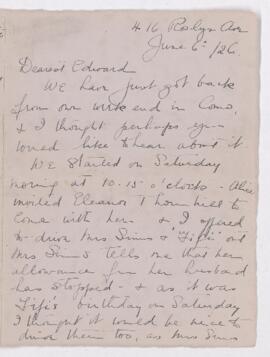 416 Roslyn Ave
June 6th/26.
Dearest Edward
We have just got back
from our week end in Como,
& I thought perhaps you
would like to hear about it.
We started on Saturday
morning at 10.15 o'clock - Alice
invited Eleanor Thornhill to
come with her & I offered
to drive Mrs Sims & "Fifi" out
Mrs Sims tells me that her
allowance from her husband
has stopped - & as it was
Fifi's birthday on Saturday
I thought it would be nice to
drive them too, as Mrs Sims